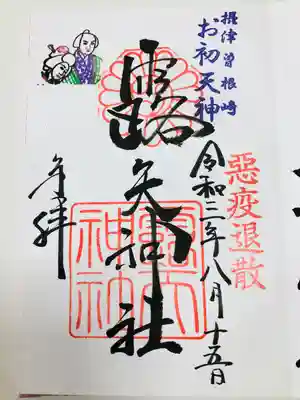 摂津曽根崎
お初天神
惡疫退散
令和三年八月十五日
露天神社
奉拝